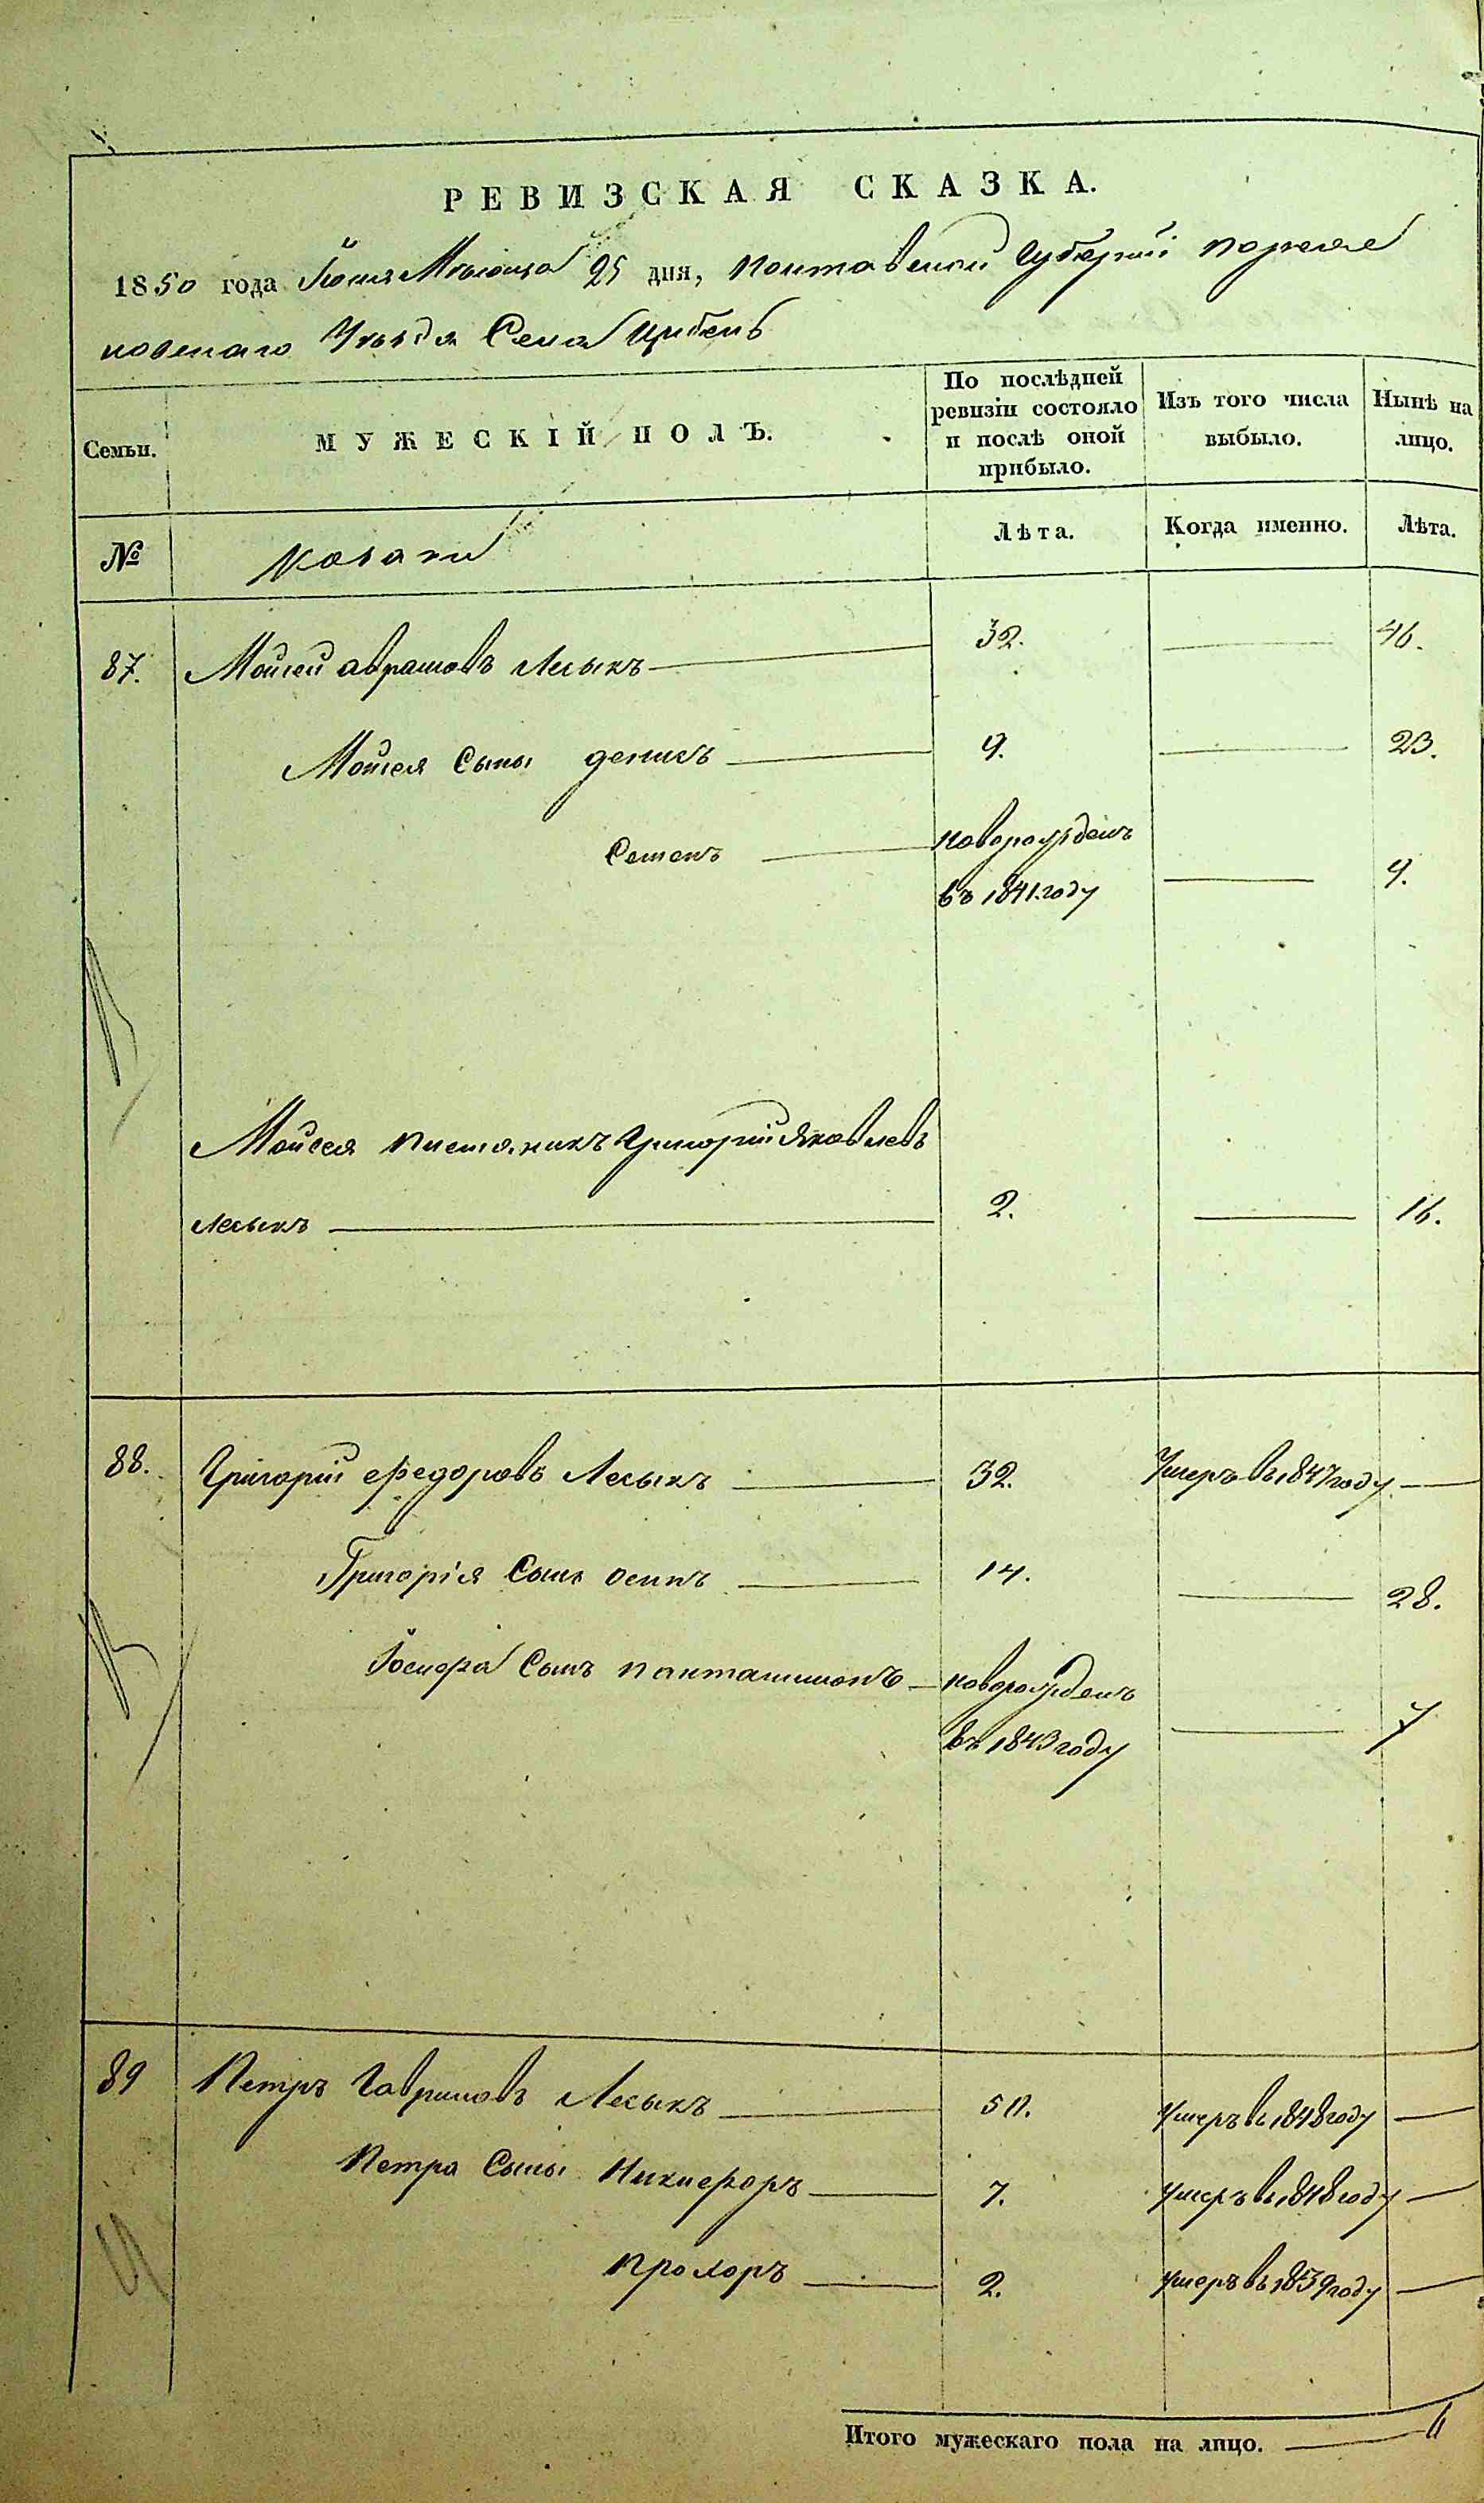 РЕВИЗСКАЯ СКАЗКА.
1850 года Іюня Мѣсяца 25 дня, Полтавской Губерніи Переяс
ловскаго Уѣзда Села
Семьи. МУЖЕСКІЙ ПОЛЪ. По послѣдней ревизіи состояло и послѣ оной прибыло. Изъ того числа выбыло. Нынѣ на лицо.
№ Козаки Лѣта. Когда именно. Лѣта.
87. Мойсей Аврамовъ Лесыкъ 32. 46.
Мойсея Сыны Денисъ 9. 23.
Семенъ новорожденъ
въ 1841 году 9.
Мойсея племяникъ Григорій Яковлевъ
Лесыкъ 2. 16.
88. Григорій Федоровъ Лесыкъ 32. Умеръ въ 1847 году
Григорія Сынъ Осипъ 14. 28.
Іосифа Сынъ Панталимонъ новорожденъ
въ 1843 году 7
89 Петръ Гавриловъ Лесыкъ 50. умеръ въ 1848 году
Петра Сыны Никифоръ 7. умеръ въ 1848 году
Прохоръ 2. умеръ въ 1839 году
Итого мужескаго пола на лицо. 6